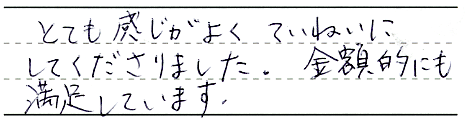 とても感じがよく ていねいに
してくださりました。金額的にも
満足しています。